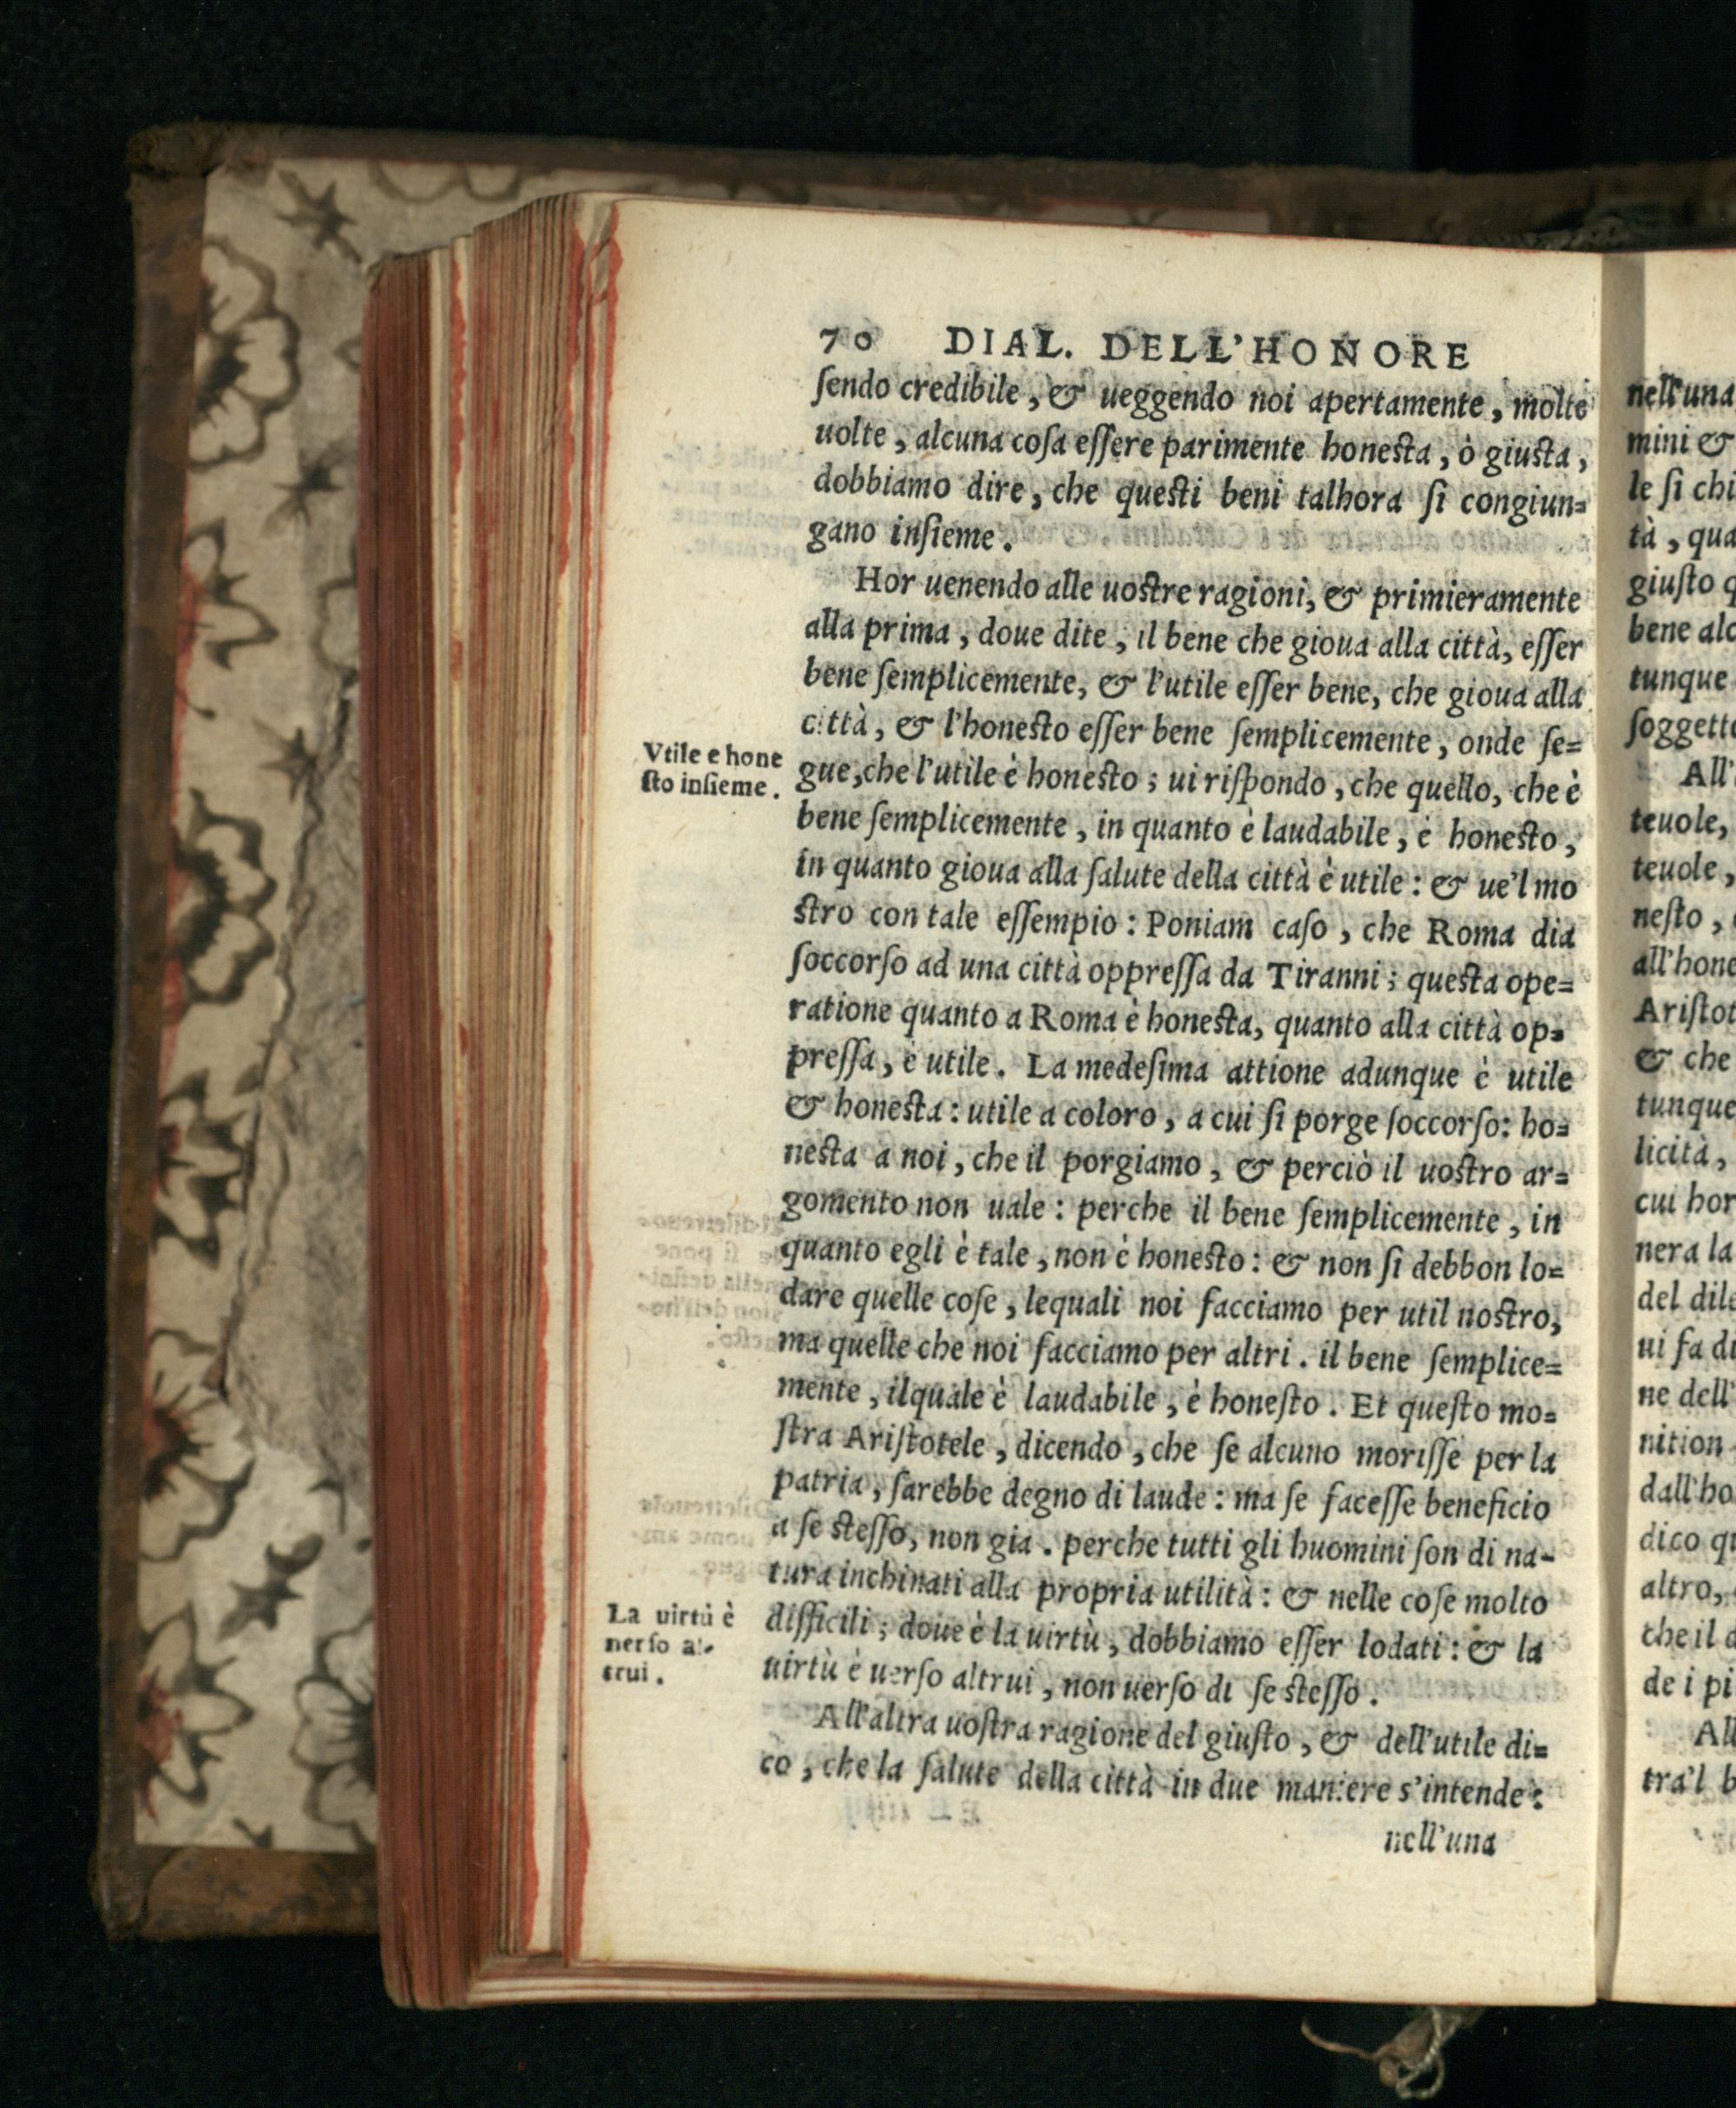 70 DIAL. DELL'HONORE
ſendo credibile, & ueggendo noi apertamente, molte
uolte, alcuna coſa eſſere parimente honeſta, ò giuſta,
dobbiamo dire, che queſti beni talhora ſi congiun=
gano inſieme.
Hor uenendo alle uoſtre ragioni, & primieramente
alla prima, doue dite, il bene che gioua alla città, eſſer
bene ſemplicemente, & l'utile eſſer bene, che gioua alla
città, & l'honeſto eſſer bene ſemplicemente, onde ſe=
Vtile e hone
ſto inſieme.
gue, che l'utile è honeſto; ui riſpondo, che quello, che è
bene ſemplicemente, in quanto è laudabile, è honeſto,
in quanto gioua alla ſalute della città è utile: & ue'l mo
ſtro con tale eſſempio: Poniam caſo, che Roma dia
ſoccorſo ad una città oppreſſa da Tiranni; queſta ope=
ratione quanto a Roma è honeſta, quanto alla città op=
preſſa, è utile. La medeſima attione adunque è utile
& honeſta: utile a coloro, a cui ſi porge ſoccorſo: ho=
neſta a noi, che il porgiamo, & perciò il uoſtro ar=
gomento non uale: perche il bene ſemplicemente, in
quanto egli è tale, non è honeſto: & non ſi debbon lo=
dare quelle coſe, lequali noi facciamo per util noſtro,
ma quelle che noi facciamo per altri. il bene ſemplice=
mente, ilquale è laudabile, è honeſto. Et queſto mo=
ſtra Ariſtotele, dicendo, che ſe alcuno moriſſe per la
patria, ſarebbe degno di laude: ma ſe faceſſe beneficio
a ſe ſteſſo, non gia. perche tutti gli huomini ſon di na-
tura inchinati alla propria utilità: & nelle coſe molto
La uirtù è
uerſo al-
trui.
difficili; doue è la uirtù, dobbiamo eſſer lodati: & la
uirtù è uerſo altrui, non uerſo di ſe ſteſſo.
All'altra uoſtra ragione del giuſto, & dell'utile di=
co, che la ſalute della città in due maniere s'intende:
nell'una
nell'una
mini &
le ſi chi
tà, qua
giuſto q
bene alc
tunque
ſoggett
All'
teuole,
teuole,
neſto,
all'hone
Ariſtot
& che
tunque
licità,
cui hor
nera la
del dile
ui fa di
ne dell'
nition
dall'ho
dico qu
altro,
che il
de i pi
All
tra'l b